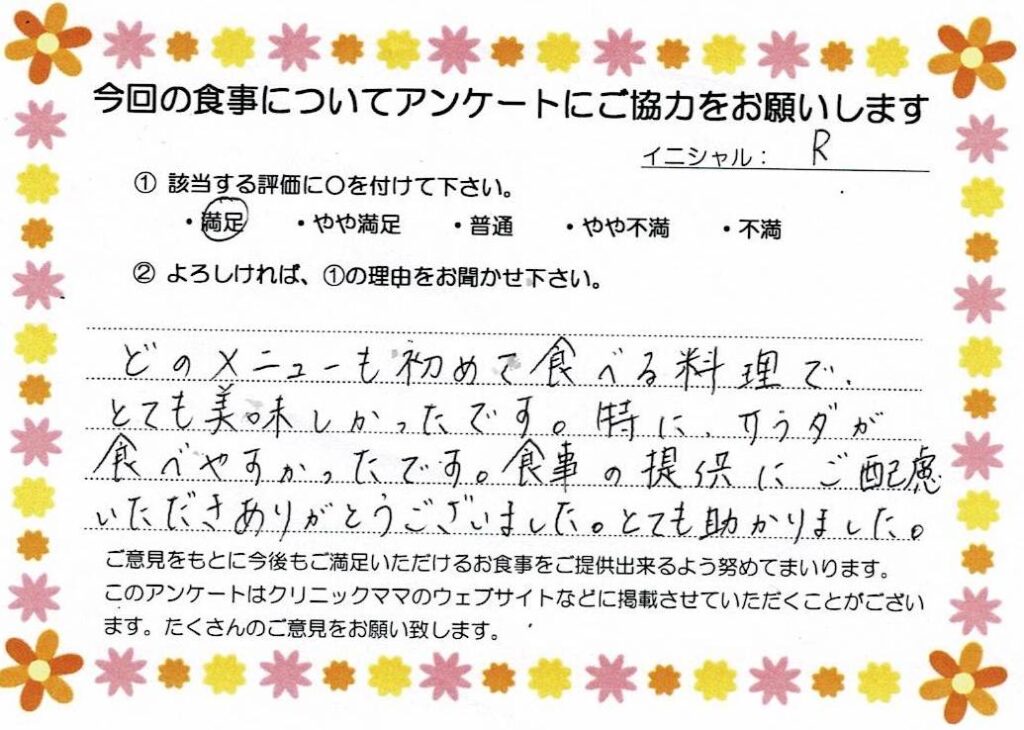 今回の食事についてアンケートにご協力をお願いします
イニシャル： R
① 該当する評価に〇を付けて下さい。
・満足 ・やや満足 ・普通 ・やや不満 ・不満
② よろしければ、①の理由をお聞かせ下さい。
どのメニューも初めて食べる料理で、
とても美味しかったです。特に、サラダが
食べやすかったです。食事の提供にご配慮
いただきありがとうございました。とても助かりました。
ご意見をもとに今後もご満足いただけるお食事をご提供出来るよう努めてまいります。
このアンケートはクリニックママのウェブサイトなどに掲載させていただくことがござい
ます。たくさんのご意見をお願い致します。